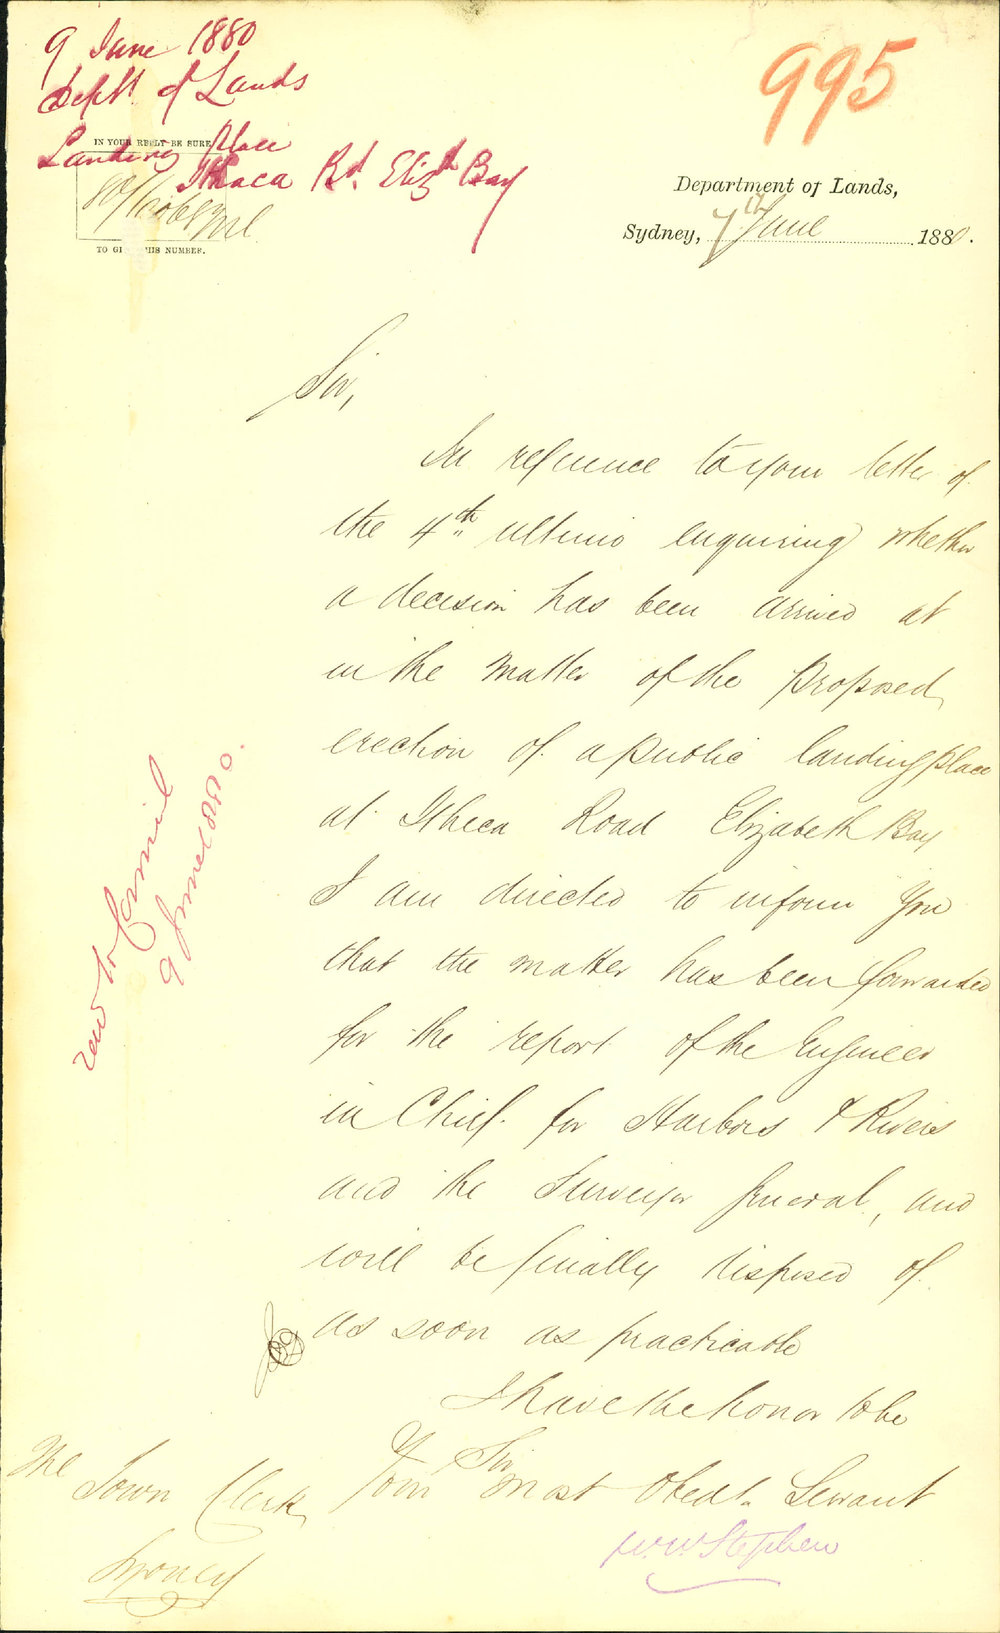 9 June 1880
Deptt. of Lands
Landing Place
Ithaca Rd. Elizth Bay
995
IN YOUR REPLY BE SURE
TO GI HIS NUMBER.
Department of Lands,
Sydney, 7th June 1880.
Sir,
In reference to your letter of
the 4th ultimo enquiring whether
a decision has been arrived at
in the matter of the proposed
erection of a public landing place
at Itheca Road Elizabeth Bay
I am directed to inform you
that the matter has been forwarded
for the report of the Engineer
in Chief for Harbors & Rivers
and the Surveyor General, and
will be finally disposed of
as soon as practicable
I have the honor to be
Sir
Your most Obedt. Servant
W. W. Stephen
The
Town Clerk
Sydney
9 June 1880.